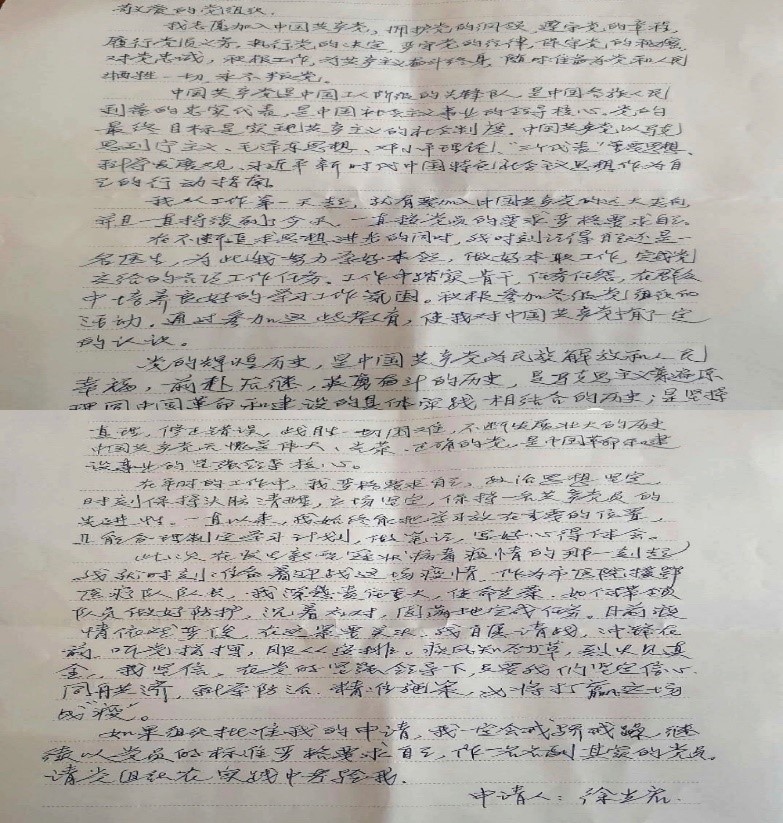 敬爱的党组织:
我志愿加入中国共产党,拥护党的纲领,遵守党的章程,
履行党员义务,执行党的决定,严守党的纪律,保守党的秘密,
对党忠诚,积极工作,为共产主义奋斗终身,随时准备为党和人民
牺牲一切,永不叛党。
中国共产党是中国工人阶级的先锋队,是中国各族人民
利益的忠实代表,是中国社会主义事业的领导核心。党的
最终目标是实现共产主义的社会制度。中国共产党以马克
思列宁主义、毛泽东思想、邓小平理论、“三个代表”重要思想、
科学发展观、习近平新时代中国特色社会主义思想作为自
己的行动指南。
我从工作第一天起,就有要加入中国共产党的远大志向
并且一直持续到了今天,一直按党员的要求严格要求自己。
在不断追求思想进步的同时,我时刻记得自己还是一
名医生,为此我努力学好本领,做好本职工作,完成党
交给的各项工作任务。工作中踏实肯干,任劳任怨,在群众
中培养良好的学习工作氛围。积极参加各级党组织的
活动,通过参加这些教育,使我对中国共产党有了一定
的认识。
党的辉煌历史,是中国共产党为民族解放和人民
幸福,前赴后继,英勇奋斗的历史,是马克思主义普遍原
理同中国革命和建设的具体实践相结合的历史;是坚持
真理,修正错误,战胜一切困难,不断发展壮大的历史
中国共产党无愧是伟大、光荣、正确的党,是中国革命和建
设事业的坚强领导核心。
在平时的工作中,我严格要求自己,政治思想坚定,
时刻保持头脑清醒,立场坚定,保持一名共产党员的
先进性。一直以来,我始终能把学习放在重要的位置,
且能合理制定学习计划,做笔记,写好心得体会。
此次在发生新型冠状病毒疫情的那一刻起
我就时刻准备着迎战这场疫情。作为市医院援鄂
医疗队队长,我深感责任重大,使命光荣。如何带领
队员做好防护,沉着应对,圆满地完成任务。目前疫
情依然严峻,在这紧要关头,我自愿请战,冲锋在
前,听党指挥,服从安排。疾风知劲草,烈火见真
金,我坚信,在党的坚强领导下,只要我们坚定信心
同舟共济,科学防治,精准施策,必将打赢这场
战“疫”。
如果组织批准我的申请,我一定会戒骄戒躁,继
续以党员的标准严格要求自己,作一名名副其实的党员。
请党组织在实践中考验我。
申请人:徐